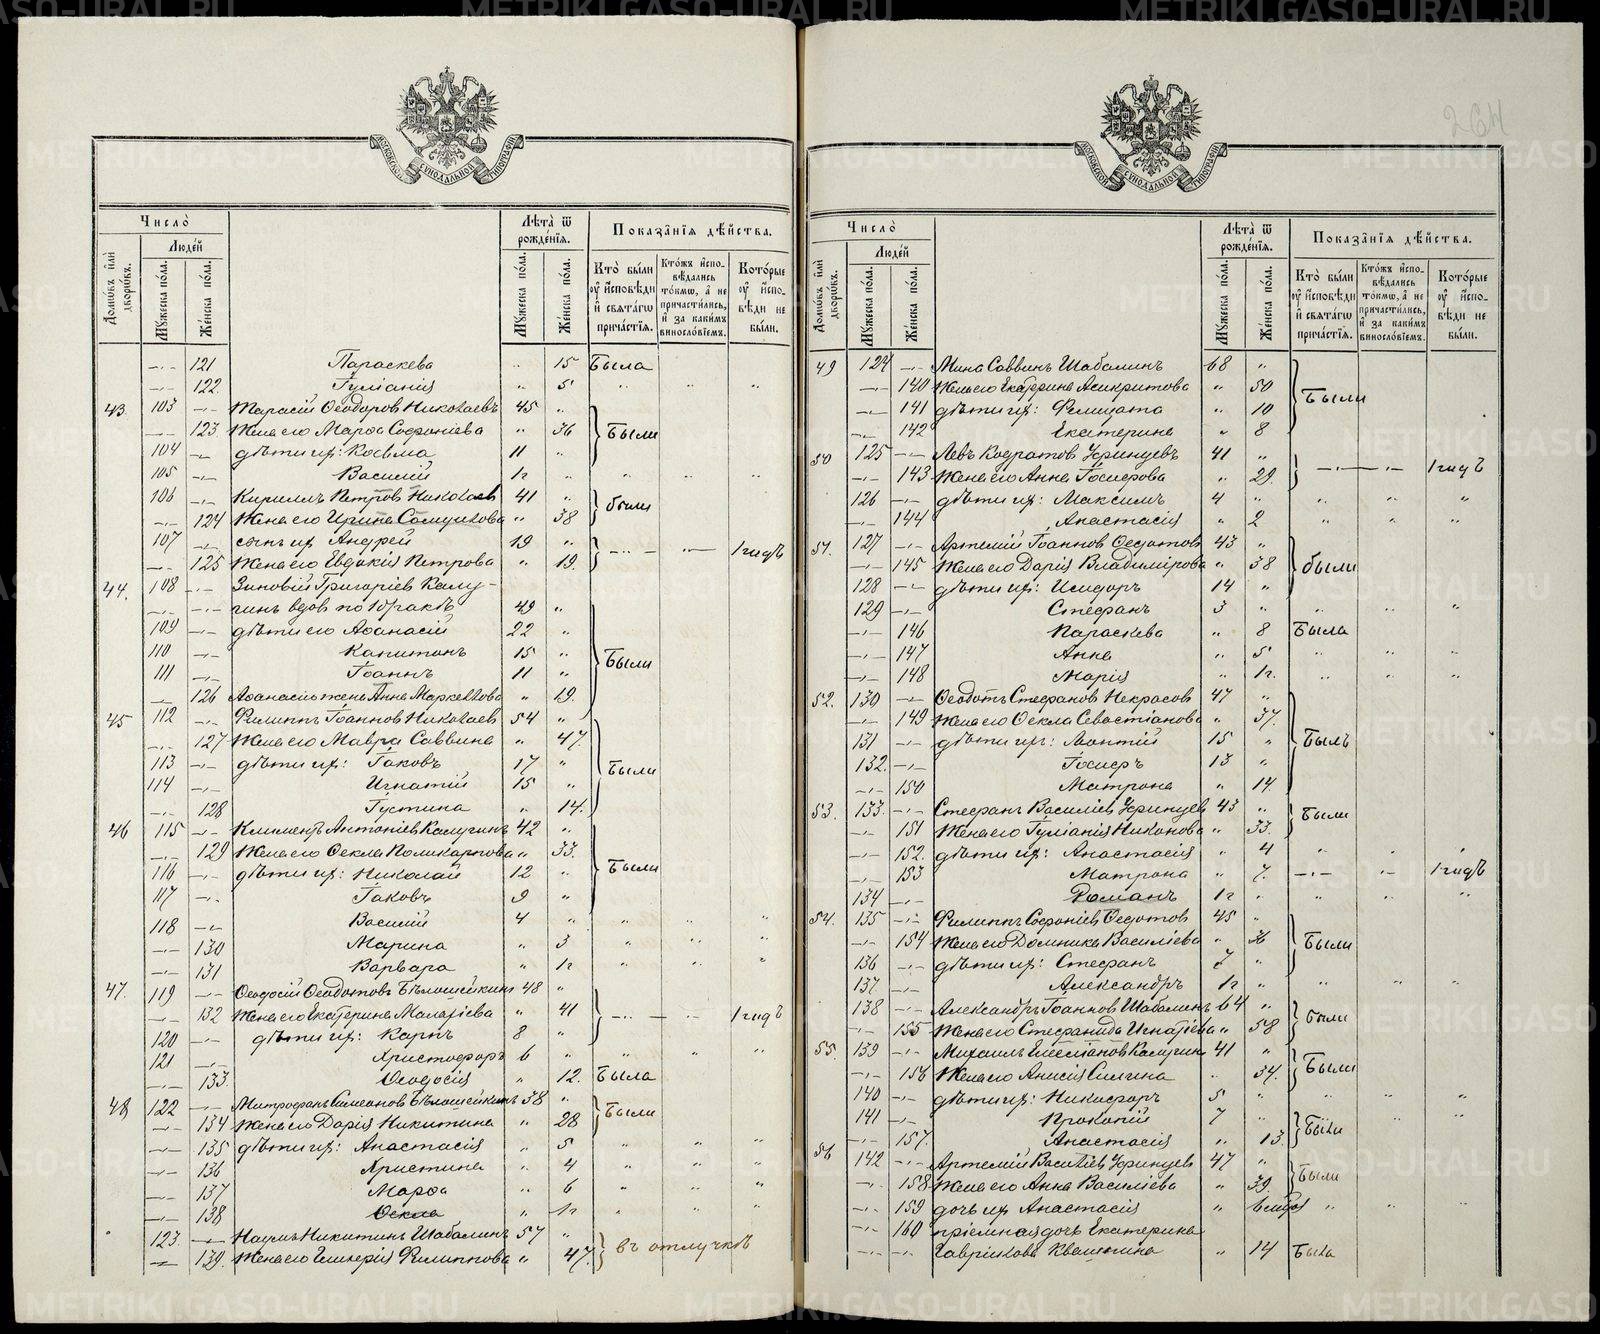 264
Московской Сѵнодальной Типографіи
Число̀
Домѡвъ и҆лѝ дворѡвъ.
Люде́й
Мꙋжеска по́ла.
Же́нска по́ла.
Лѣ́та ѿ рожде́нїѧ.
Мꙋжеска по́ла.
Же́нска по́ла.
Показа̑нїѧ дѣ́йства.
Кто̀ бы́ли ᲂу҆ и҆сповѣ́ди и҆ свѧта́гѡ прича́стїѧ.
Кто́жъ и҆сповѣ́дались то́кмѡ, а҆ не причасти́лись, и҆ за каки́мъ винослові́емъ.
Кото́рые ᲂу҆ и҆сповѣ́ди не бы́ли.
-"- 121 Параскева " 15 Была
-"- 122 Іуліанія " 5 " " "
43. 103 -"- Тарасій Ѳеодоров Николаевъ 45 "
-"- 123 Жена его Марѳа Софроніева " 36 Были
104 -"- дѣти их: Косьма 11 "
105 -"- Василій 1г " " " "
106 -"- Кириллъ Петров Николаев 41 "
-"- 124 Жена его Ирина Самуилова " 38 были
107 -"- сынъ их Андрей 19 "
-"- 125 Жена его Евдокія Петрова " 19. -"- -"- 1 годъ
44. 108 -"- Зиновій Григоріев Калу-
-"- -"- гинъ вдов по 1 бракѣ 49 "
109 -"- дѣти его Аѳанасій 22 "
110 -"- Капитонъ 15 " Были
111 -"- Іоаннъ 11 "
-"- 126 Аѳанасія жена Анна Маркелова " 19.
45 112 -"- Филиппъ Іоаннов Николаев 54 "
-"- 127 Жена его Мавра Саввина " 47.
113 -"- дѣти их: Іаковъ 17 " Были
114 -"- Игнатій 15 "
-"- 128 Іустина " 14.
46 115 -"- Климентъ Антоніев Калугинъ 42 "
-"- 129 Жена его Ѳекла Поликарпова " 33.
116 -"- дѣти их: Николай 12 " Были
117 -"- Іаковъ 9 "
118 -"- Василій 4 " " " "
-"- 130 Марина " 3 " " "
-"- 131 Варвара " 1г " " "
47. 119 -"- Ѳеодосій Ѳеодотовъ Бѣлошейкинъ 48 "
-"- 132 Жена его Екатерина Малахіева " 41 -"- -"- 1 годъ
120 -"- дѣти их: Карпъ 8 "
121 -"- Христофоръ 6 " " " "
-"- 133. Ѳеодосія " 12. Была
48 122 -"- Митрофанъ Симеонов Бѣлошейкинъ 38 "
-"- 134 Жена его Дарія Никитина " 28 Были
-"- 135 дѣти их: Анастасія " 5 " " "
-"- 136 Христина " 4 " " "
-"- 137 Марѳа " 6 " " "
-"- 138 Ѳекла " 1г " " "
123 -"- Наумъ Никитинъ Шабалинъ 57 "
-"- 139. Жена его Гликерія Филиппова " 47. въ отлучкѣ
Московской Сѵнодальной Типографіи
Число̀
Домѡвъ и҆лѝ дворѡвъ.
Люде́й
Мꙋжеска по́ла.
Же́нска по́ла.
Лѣ́та ѿ рожде́нїѧ.
Мꙋжеска по́ла.
Же́нска по́ла.
Показа̑нїѧ дѣ́йства.
Кто̀ бы́ли ᲂу҆ и҆сповѣ́ди и҆ свѧта́гѡ прича́стїѧ.
Кто́жъ и҆сповѣ́дались то́кмѡ, а҆ не причасти́лись, и҆ за каки́мъ винослові́емъ.
Кото́рые ᲂу҆ и҆сповѣ́ди не бы́ли.
49 124 -"- Мина Саввинъ Шабалинъ 68 "
-"- 140 Жена его Екатерина Асикритова " 50 Были
-"- 141 дѣти их: Фелицата " 10
-"- 142 Екатерина " 8
50 125 -"- Левъ Кодратов Уфинцевъ 41 "
-"- 143 Жена его Анна Іосифова " 29. -"- -"- 1 годъ
126 -"- дѣти их: Максимъ 4 " " " "
-"- 144 Анастасія " 2 " " "
51. 127 -"- Артемій Іоаннов Ѳедотов 43 "
-"- 145 Жена его Дарія Владимірова " 38 были
128 -"- дѣти их: Исидоръ 14 "
129 -"- Стефанъ 3 " " " "
-"- 146 Параскева " 8 Была
-"- 147 Анна " 5 " " "
-"- 148 Марія " 1г. " " "
52. 130 -"- Ѳеодотъ Стефанов Некрасов 47 "
-"- 149 Жена его Ѳекла Севастіанова " 37.
131 -"- дѣти их: Леонтій 15 " Былъ
132. -"- Іосифъ 13 "
-"- 150 Матрона " 14.
53. 133. -"- Стефанъ Василіев Уфинцев 43 "
-"- 151 Жена его Іуліанія Никонова " 33. Были
-"- 152. дѣти их: Анастасія " 4 " " "
-"- 153 Матрона " 7. -"- -"- 1 годъ
134 -"- Романъ 1г " " " "
54. 135 -"- Филиппъ Софроніев Ѳедотов 45 "
-"- 154 Жена его Домника Василіева " 36 Были
136 -"- дѣти их: Стефанъ 7 "
137 -"- Александръ 1г " " " "
138 -"- Александръ Іоаннов Шабалинъ 64 "
-"- 155 Жена его Стефанида Игнатіева " 58 были
55. 139 -"- Михаилъ Емеліанов Калугин 41 "
-"- 156 Жена его Анисія Силина " 34. Были
140 -"- дѣти их: Никифоръ 5 " " " "
141 -"- Прокопій 7 "
-"- 157. Анастасія " 13. Были
56 142 -"- Артемій Василіев Уфинцев 47 "
-"- 158 Жена его Анна Василіева " 39. Были
-"- 159 дочь их Анастасія " " " "
-"- 160 пріемная дочь Екатерина
-"- -"- Гаврилова Квашнина " 14 Была
METRIKI.GASO-URAL.RU